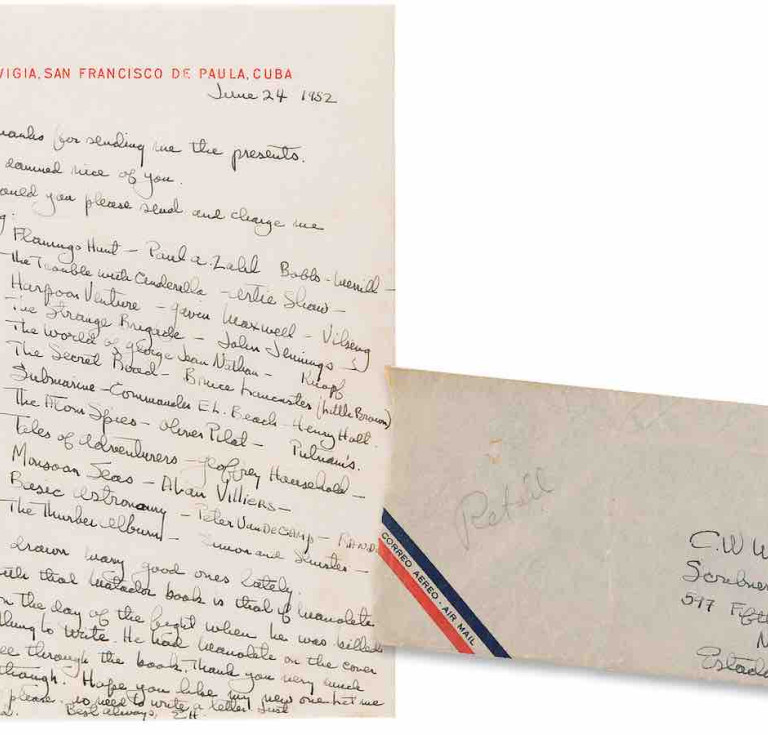 VIGIA, SAN FRANCISCO DE PAULA, CUBA
June 24 1952
hanks for sending me the presents.
damned nice of you.
ould you please send and charge me
g:
Flamingo Hunt — Paul A. Zahl Bobbs-Merrill —
The Trouble with Cinderella — Artie Shaw —
Harpoon Venture — Gavin Maxwell — Viking
The Strange Brigade — John Jennings —
The World of George Jean Nathan — Knopf
The Secret Road — Bruce Lancaster (Little Brown)
Submarine — Commander E.L. Beach — Henry Holt.
The Atom Spies — Oliver Pilat — Putnam's.
Tales of Adventurers — Geoffrey Household —
Monsoon Seas — Alan Villiers —
Basic Astronomy — Peter Van De Camp — RAND
The Thurber Album — Simon and Schuster —
drawn many good ones lately.
with that matador book is that if Manolete
on the day of the fight when he was killed
thing to write. He had Manolete on the cover
ee through the book. Thank you very much
though. Hope you like my new one. Let me
please. No need to write a letter. Just
Best always, E.H.
Retail
CORREO AEREO - AIR MAIL
C.W. W
Scribner
597 Fifth
N
Estado